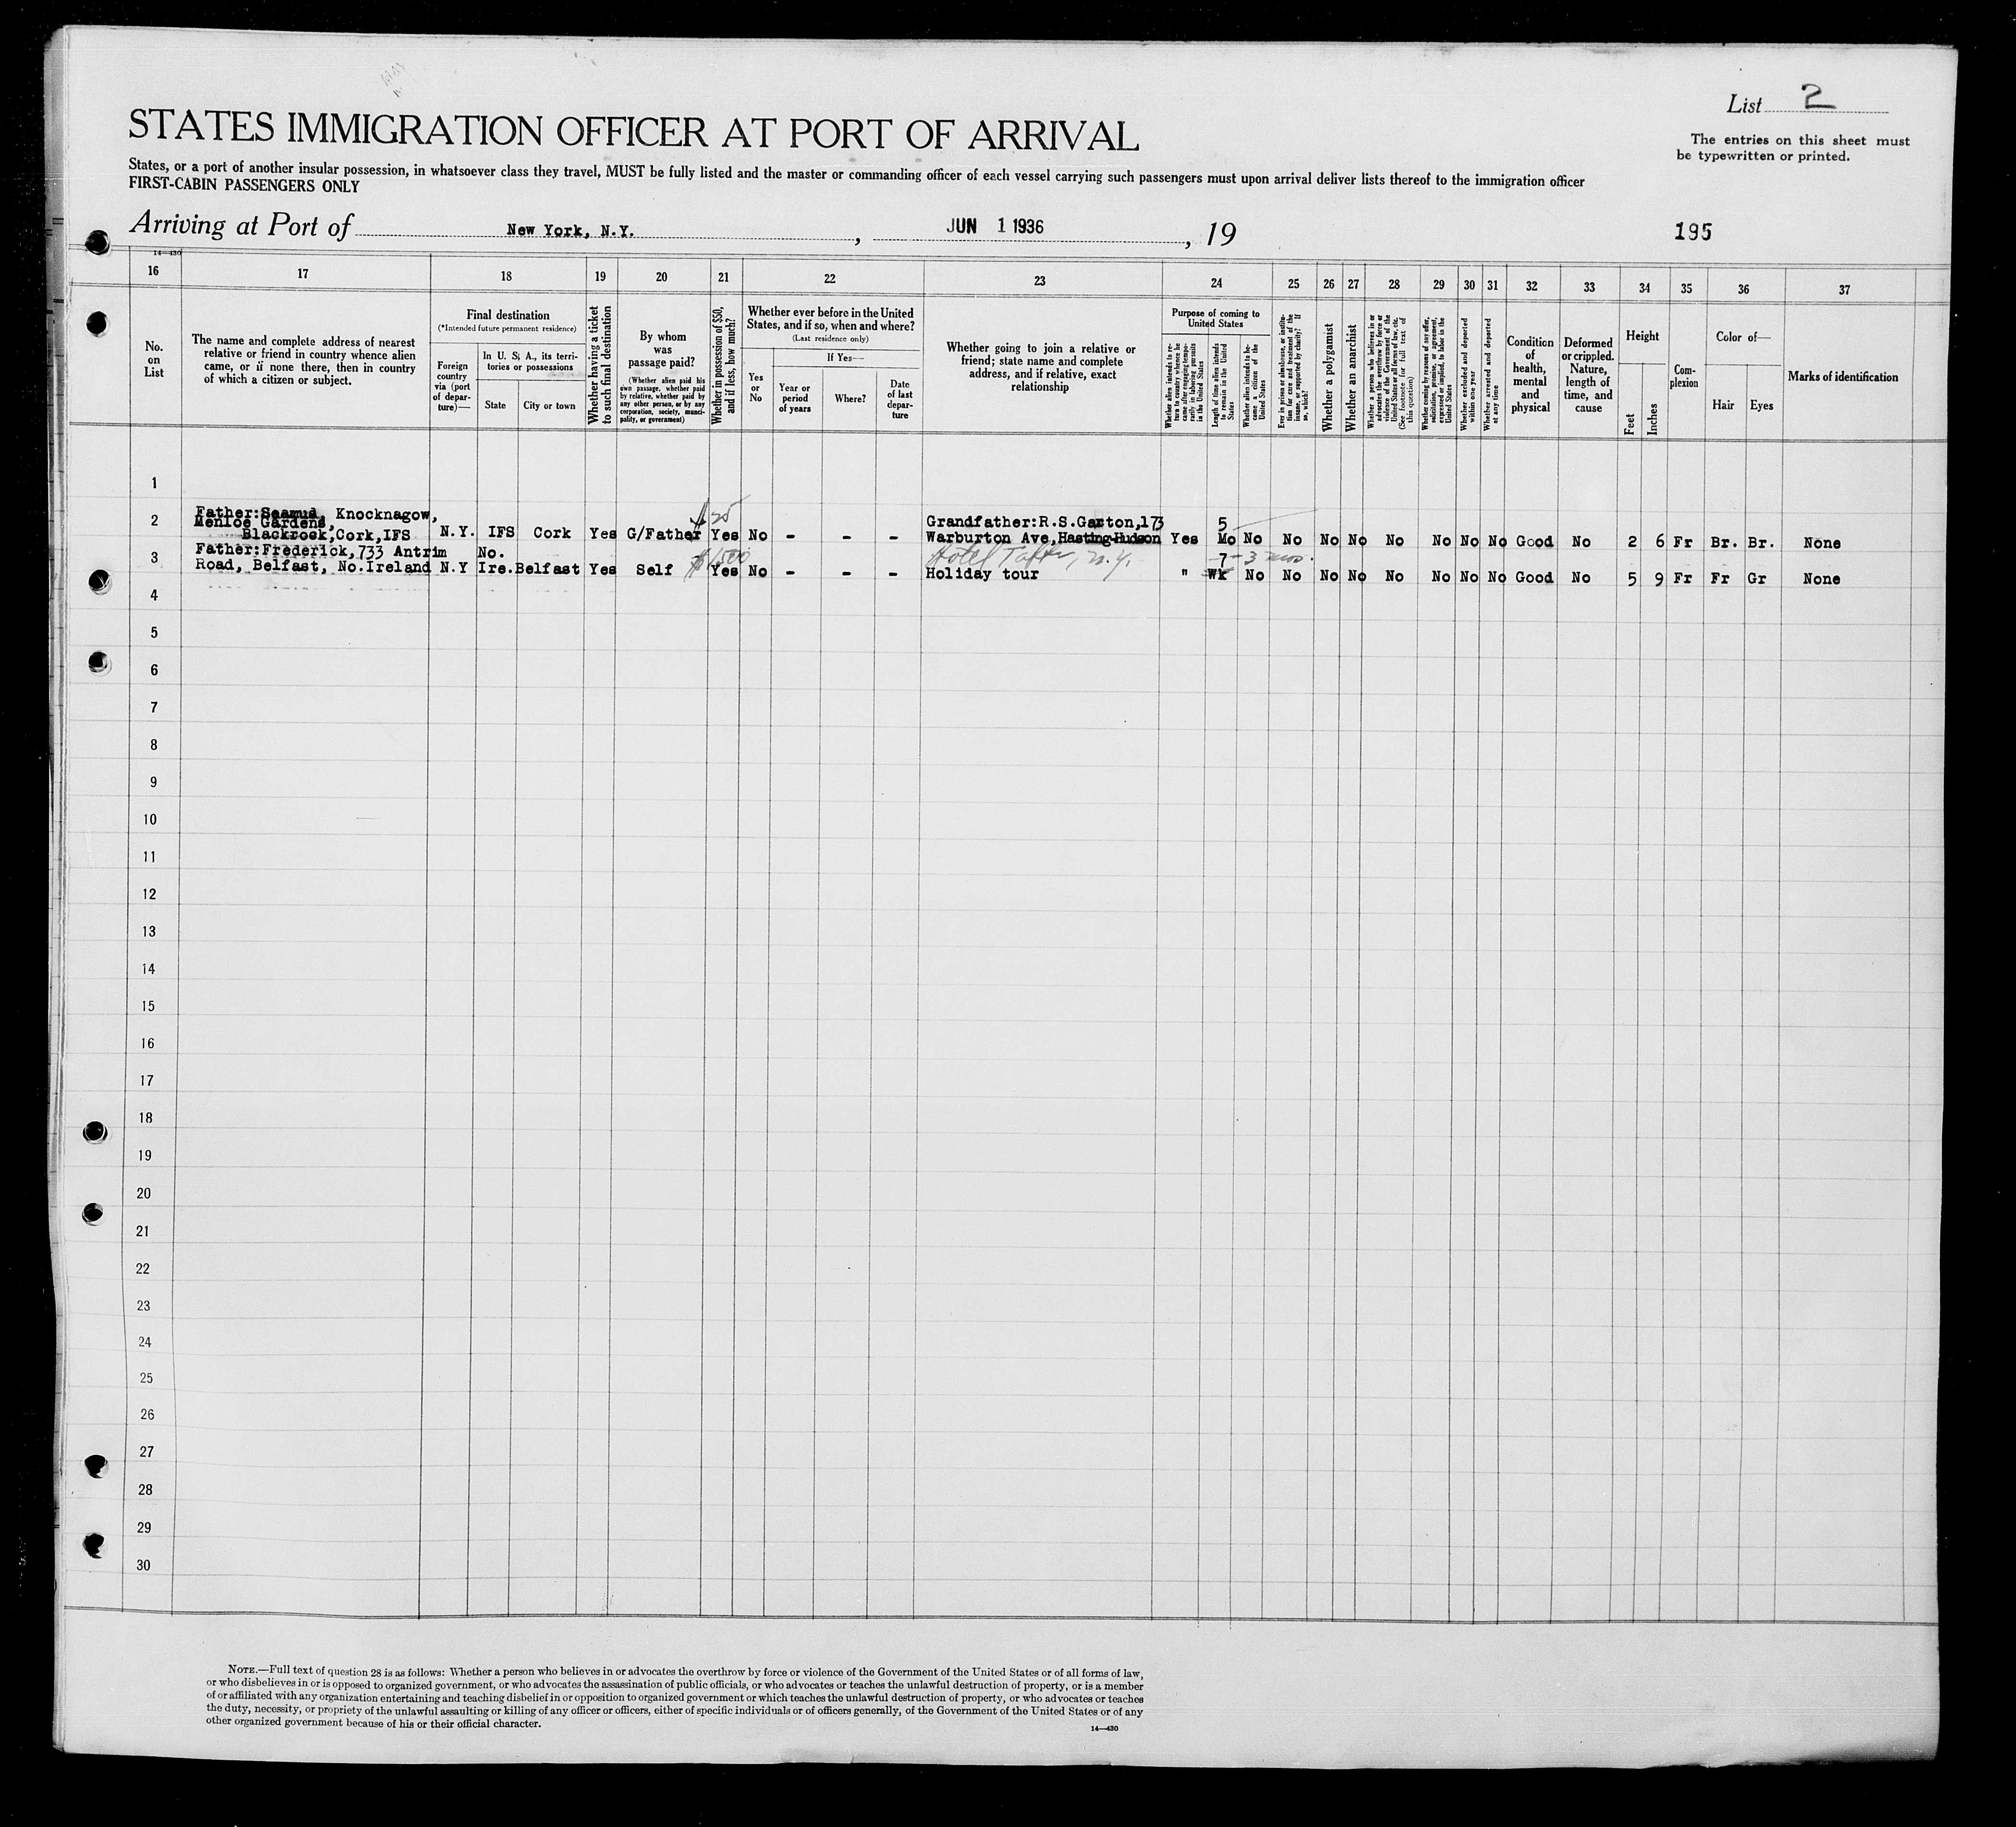 List 2
STATES IMMIGRATION OFFICER AT PORT OF ARRIVAL
The entries on this sheet must
be typewritten or printed.
States, or a port of another insular possession, in whatsoever class they travel, MUST be fully listed and the master or commanding officer of each vessel carrying such passengers must upon arrival deliver lists thereof to the immigration officer
FIRST-CABIN PASSENGERS ONLY
Arriving at Port of New York, N.Y., JUN 1 1936, 19
195
14—430
16 17 18 19 20 21 22 23 24 25 26 27 28 29 30 31 32 33 34 35 36 37
No.
on
List
The name and complete address of nearest
relative or friend in country whence alien
came, or if none there, then in country
of which a citizen or subject.
Final destination
(*Intended future permanent residence)
Foreign
country
via (port
of depar-
ture)—
In U. S. A., its terri-
tories or possessions
State
City or town
Whether having a ticket
to such final destination
By whom
was
passage paid?
(Whether alien paid his
own passage, whether paid
by relative, whether paid by
any other person, or by any
corporation, society, munici-
pality, or government)
Whether in possession of $50,
and if less, how much?
Whether ever before in the United
States, and if so, when and where?
(Last residence only)
Yes
or
No
If Yes—
Year or
period
of years
Where?
Date
of last
depar-
ture
Whether going to join a relative or
friend; state name and complete
address, and if relative, exact
relationship
Purpose of coming to
United States
Whether alien intends to re-
turn to country whence he
came after engaging tempo-
rarily in laboring pursuits
in the United States
Length of time alien intends
to remain in the United
States
Whether alien intends to be-
come a citizen of the
United States
Ever in prison or almshouse, or institu-
tion for care and treatment of the
insane, or supported by charity? If
so, which?
Whether a polygamist
Whether an anarchist
Whether a person who believes in or
advocates the overthrow by force or
violence of the Government of the
United States or all forms of law, etc.
(See footnote for full text of
this question)
Whether coming by reasons of any offer,
solicitation, promise, or agreement,
expressed or implied, to labor in the
United States
Whether excluded and deported
within one year
Whether arrested and deported
at any time
Condition
of
health,
mental
and
physical
Deformed
or crippled.
Nature,
length of
time, and
cause
Height
Feet
Inches
Com-
plexion
Color of—
Hair
Eyes
Marks of identification
1
2
Father:Seamus, Knocknagow, $25 Grandfather:R.S.Garton,173 5
Menloe Gardens,
Blackrock,Cork,IFS N.Y. IFS Cork Yes G/Father Yes No - - - Warburton Ave,Hasting-Hudson Yes Mo No No No No No No No No Good No 2 6 Fr Br. Br. None
3
Father:Frederick,733 Antrim No. Hotel Taft, N.Y. 7 - 3 mos.
Road, Belfast, No.Ireland N.Y Ire.Belfast Yes Self Yes No - - - Holiday tour " Wk No No No No No No No No Good No 5 9 Fr Fr Gr None
4
5
6
7
8
9
10
11
12
13
14
15
16
17
18
19
20
21
22
23
24
25
26
27
28
29
30
NOTE.—Full text of question 28 is as follows: Whether a person who believes in or advocates the overthrow by force or violence of the Government of the United States or of all forms of law,
or who disbelieves in or is opposed to organized government, or who advocates the assassination of public officials, or who advocates or teaches the unlawful destruction of property, or is a member
of or affiliated with any organization entertaining and teaching disbelief in or opposition to organized government or which teaches the unlawful destruction of property, or who advocates or teaches
the duty, necessity, or propriety of the unlawful assaulting or killing of any officer or officers, either of specific individuals or of officers generally, of the Government of the United States or of any
other organized government because of his or their official character.
14—430